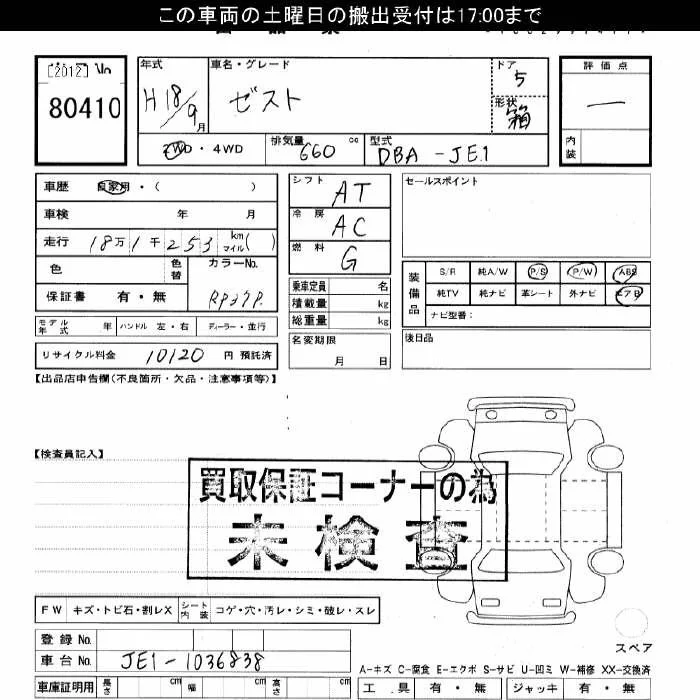 この車両の土曜日の搬出受付は17:00まで
[2012] No
80410
年式 H18/9月
車名・グレード ゼスト
ドア 5
形状 箱
評価点 —
内装
2WD・4WD
排気量 660 cc
型式 DBA-JE1
車歴 自家用・( )
車検 年 月
走行 18万1千253 km マイル( )
色 色替 カラーNo.
保証書 有・無
モデル年式 年 ハンドル 左・右 ディーラー・並行
リサイクル料金 10120 円 預託済
シフト AT
冷房 AC
燃料 G
乗車定員 名
積載量 kg
総重量 kg
名変期限 月 日
セールスポイント
装備品
S/R 純A/W P/S P/W ABS
純TV 純ナビ 革シート 外ナビ エアB
ナビ型番:
後日品
【出品店申告欄(不良箇所・欠品・注意事項等)】
【検査員記入】
買取保証コーナーの為
未検査
FW キズ・トビ石・割レX シート内装 コゲ・穴・汚レ・シミ・破レ・スレ
登録No.
車台No. JE1-1036838
車庫証明用 長さ cm 幅 cm 高さ cm
スペア
A-キズ C-腐食 E-エクボ S-サビ U-凹ミ W-補修 XX-交換済
工具 有・無 ジャッキ 有・無